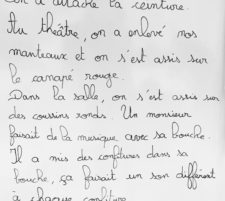 on a attaché la ceinture.
Au théâtre, on a enlevé nos
manteaux et on s'est assis sur
le canapé rouge.
Dans la salle, on s'est assis sur
des coussins ronds. Un monsieur
faisait de la musique avec sa bouche.
Il a mis des confitures dans sa
bouche, ça faisait un son différent
à chaque confiture.